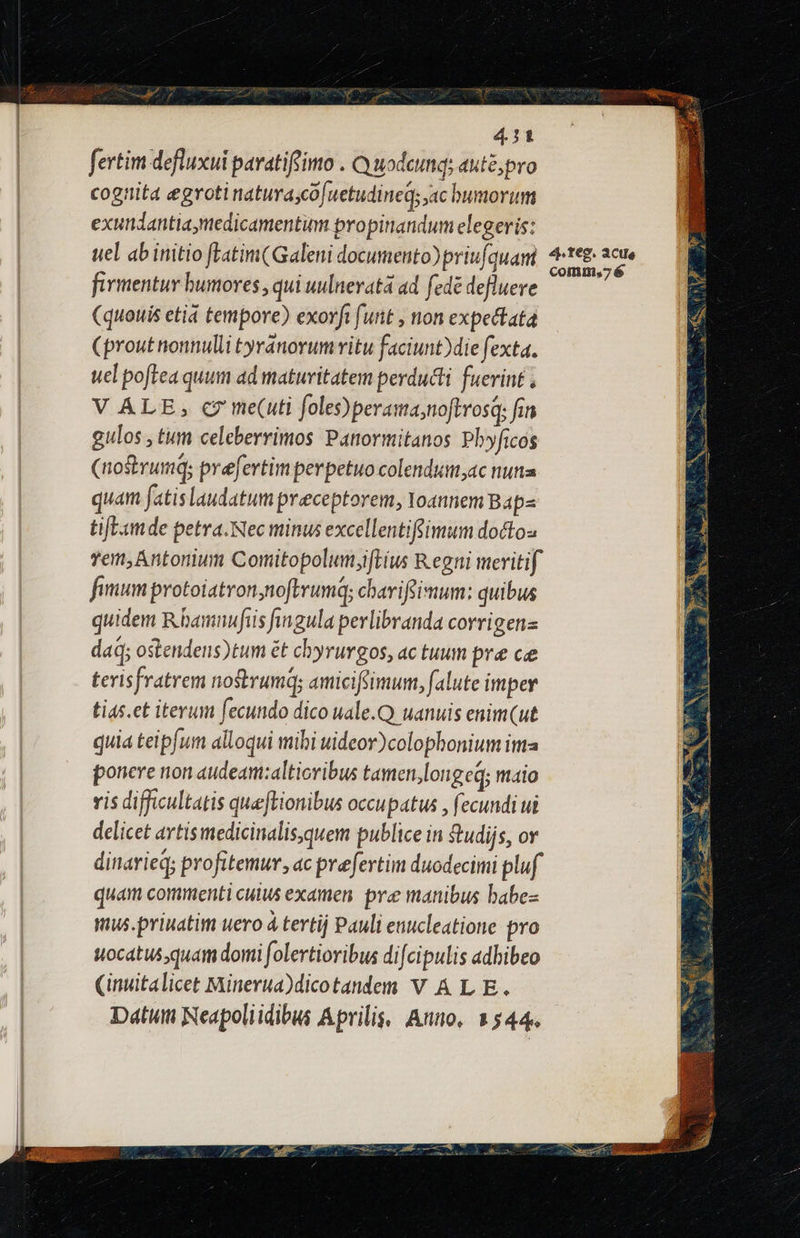 431
fertim defluxui paratißimo . Quodcunq; autē, pro
cognita ægroti natura, cōsuetudineq́;, ac humorum
exundantia, medicamentum propinandum elegeris:
uel ab initio statim (Galeni documento) priusquam
firmentur humores, qui uulneratā ad sedē defluere
(quouis etiā tempore) exorsi sunt, non expectata
(prout nonnulli tyrānorum ritu faciunt) die sexta.
uel postea quum ad maturitatem perducti fuerint,
VALE, & me (uti soles) perama, nostrosq́; sin
gulos, tum celeberrimos Panormitanos Physicos
(nostrumq́; præsertim perpetuo colendum, ac nun=
quam satis laudatum præceptorem, Ioannem Bap=
tistam de petra. Nec minus excellentißimum docto=
rem, Antonium Comitopolum, istius Regni meritis
simum protoiatron, nostrumq́; charißimum: quibus
quidem Rhamnusiis singula perlibranda corrigen=
daq́; ostendens) tum & chyrurgos, ac tuum præ cæ
teris fratrem nostrumq́; amicißimum, salute imper
tias. et iterum secundo dico uale. Quanuis enim (ut
quia teipsum alloqui mihi uideor) colophonium im=
ponere non audeam: altioribus tamen, longeq́; maio
ris difficultatis quæstionibus occupatus, secundi ui
delicet artis medicinalis, quem publice in studijs, or
dinarieq́; profitemur, ac præsertim duodecimi plus
quam commenti cuius examen præ manibus habe=
mus. priuatim uero à tertij Pauli enucleatione pro
uocatus, quam domi solertioribus discipulis adhibeo
(inuita licet Minerua) dico tandem VALE.
Datum Neapoli idibus Aprilis. Anno, 1544.
4. reg. acu.
comm. 76